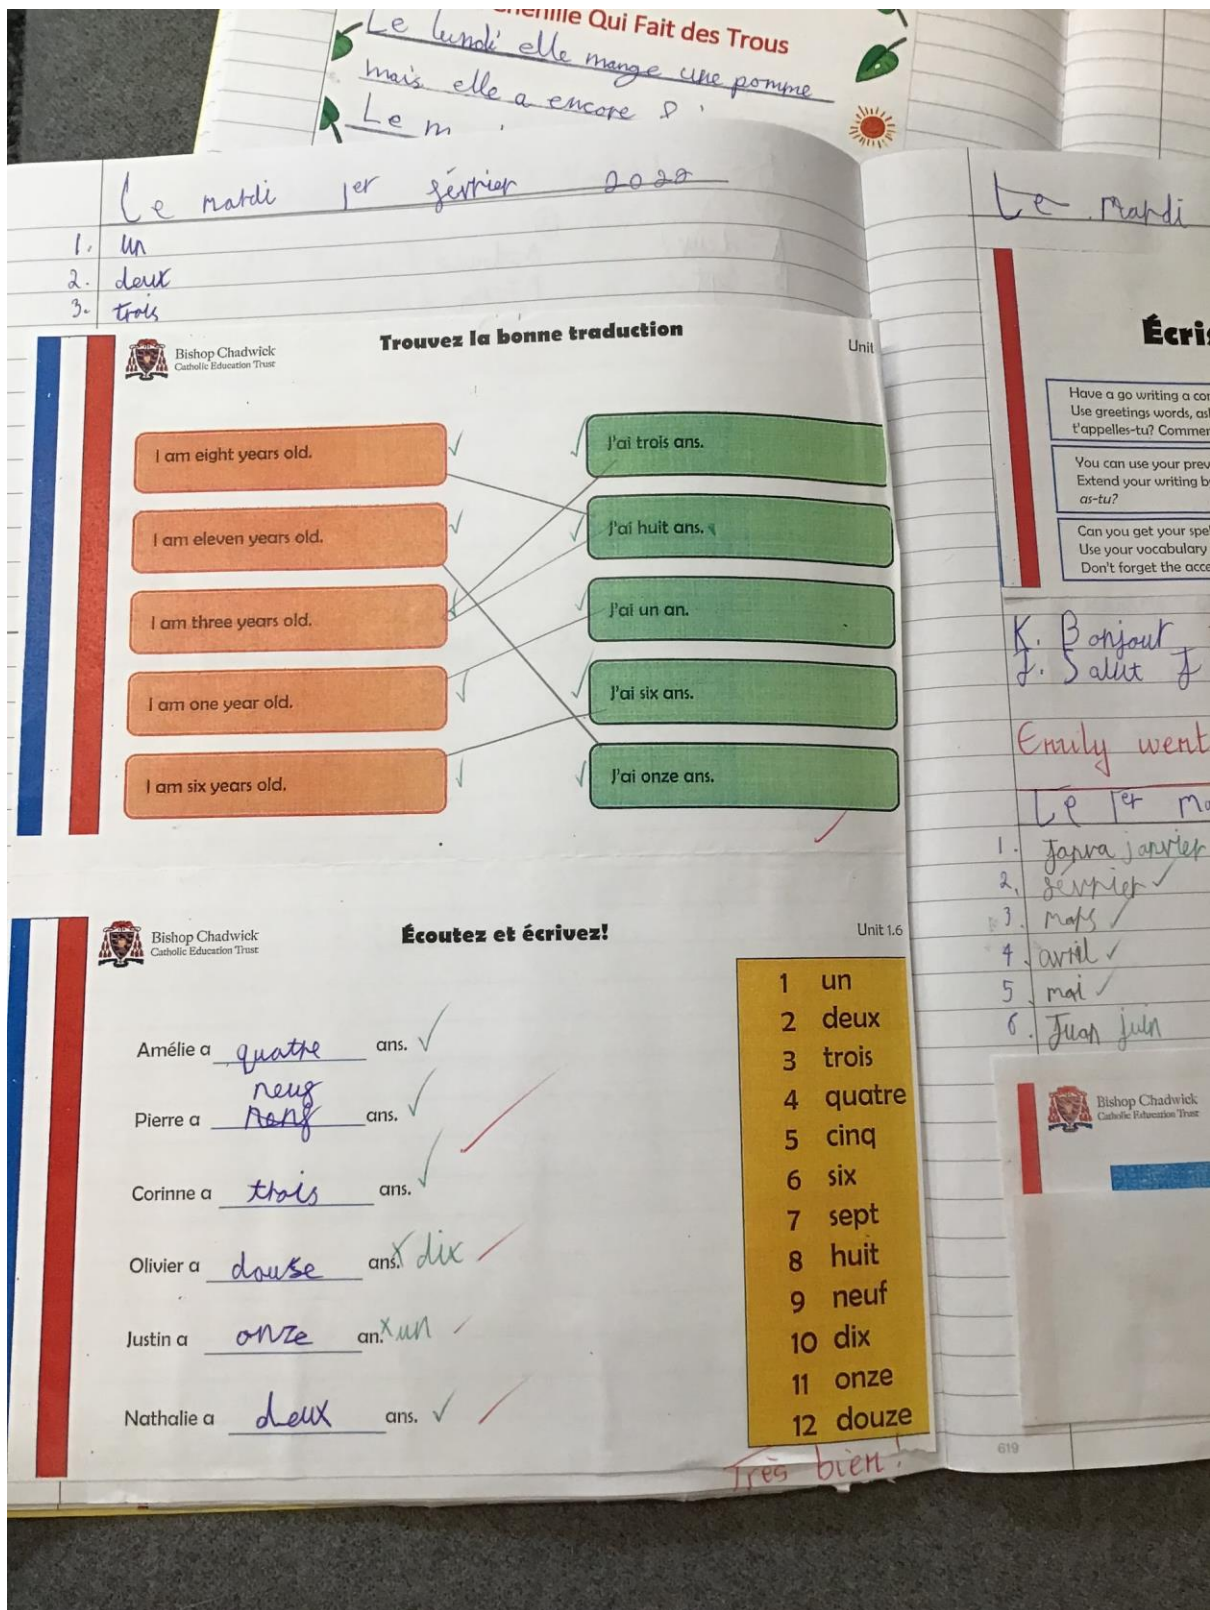 Chenille Qui Fait des Trous
Le lundi elle mange une pomme
mais elle a encore
Le m
Le mardi 1er février 2022
1. un
2. deux
3. trois
Bishop Chadwick
Catholic Education Trust
Trouvez la bonne traduction
Unit
I am eight years old.
J'ai trois ans.
I am eleven years old.
J'ai huit ans.
I am three years old.
J'ai un an.
I am one year old.
J'ai six ans.
I am six years old.
J'ai onze ans.
Bishop Chadwick
Catholic Education Trust
Écoutez et écrivez!
Unit 1.6
Amélie a quatre ans.
neuf
Pierre a nonf ans.
Corinne a trois ans.
Olivier a douse ans. x dix
Justin a onze an. x un
Nathalie a deux ans.
1 un
2 deux
3 trois
4 quatre
5 cinq
6 six
7 sept
8 huit
9 neuf
10 dix
11 onze
12 douze
Très bien!
Le mardi
Écris
Have a go writing a co
Use greetings words, as
t'appelles-tu? Commen
You can use your prev
Extend your writing b
as-tu?
Can you get your spe
Use your vocabulary
Don't forget the acce
K. Bonjour
J. Salut J
Emily went
Le 1er ma
1. Janva janvier
2. février
3. mars
4. avril
5. mai
6. Juan juin
Bishop Chadwick
Catholic Education Trust
619